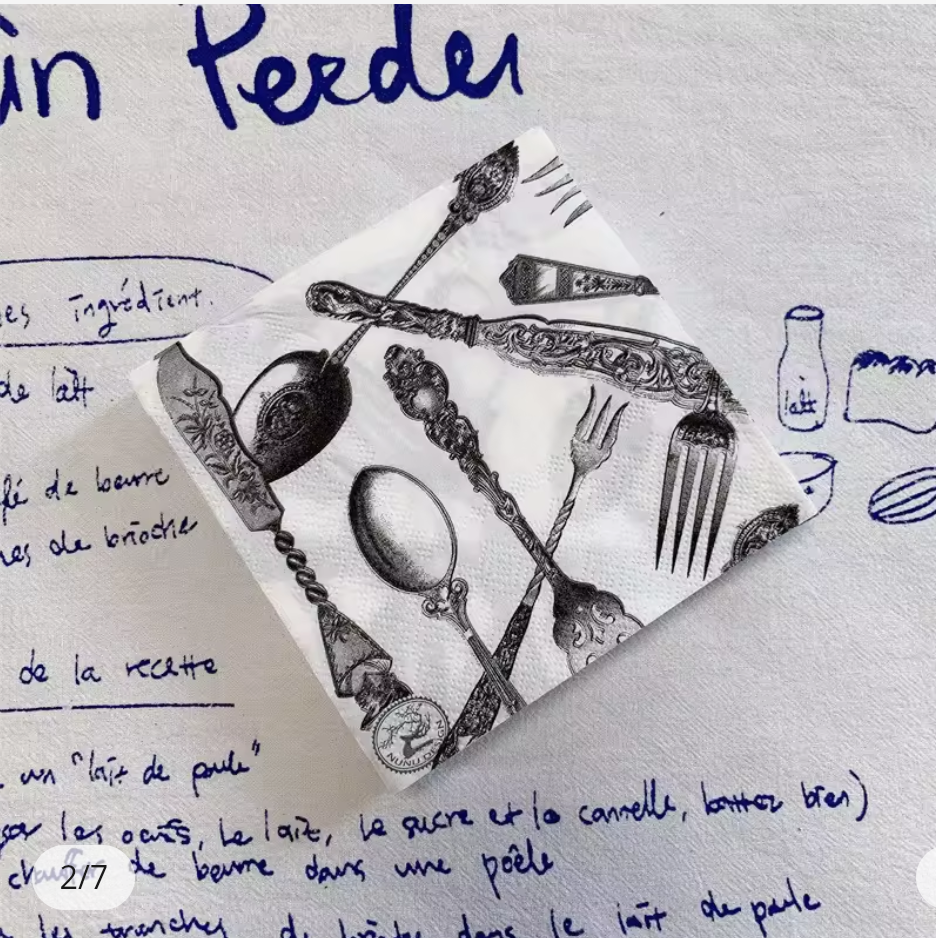 Perdu
ingrédient.
de lait
lait
de beurre
de brioche
de la recette
un "lait de poule"
les oeufs, le lait, le sucre et la cannelle, battez bien)
chauffer de beurre dans une poêle
tranches de brioche dans le lait de poule
NUNU
2/7